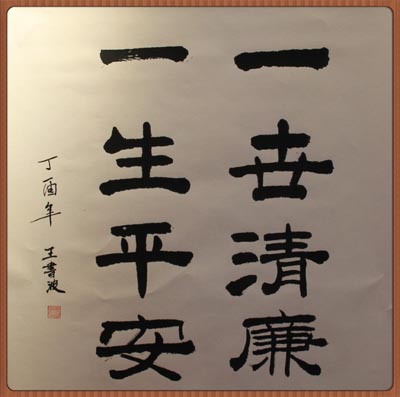 一世清廉
一生平安
丁酉年 王書波